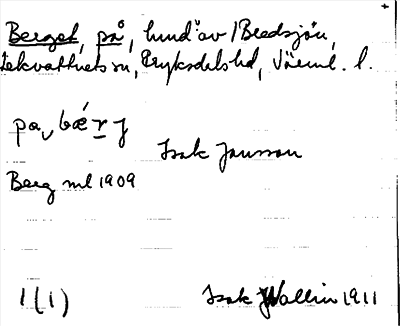 Berget, på, lund av Bredsjön,
Lekvattnets sn, Fryksdals hd, Värml. l.
pa, bærj
Isak Jansson
Berg ml 1909
1(1) Isak Wallin 1911